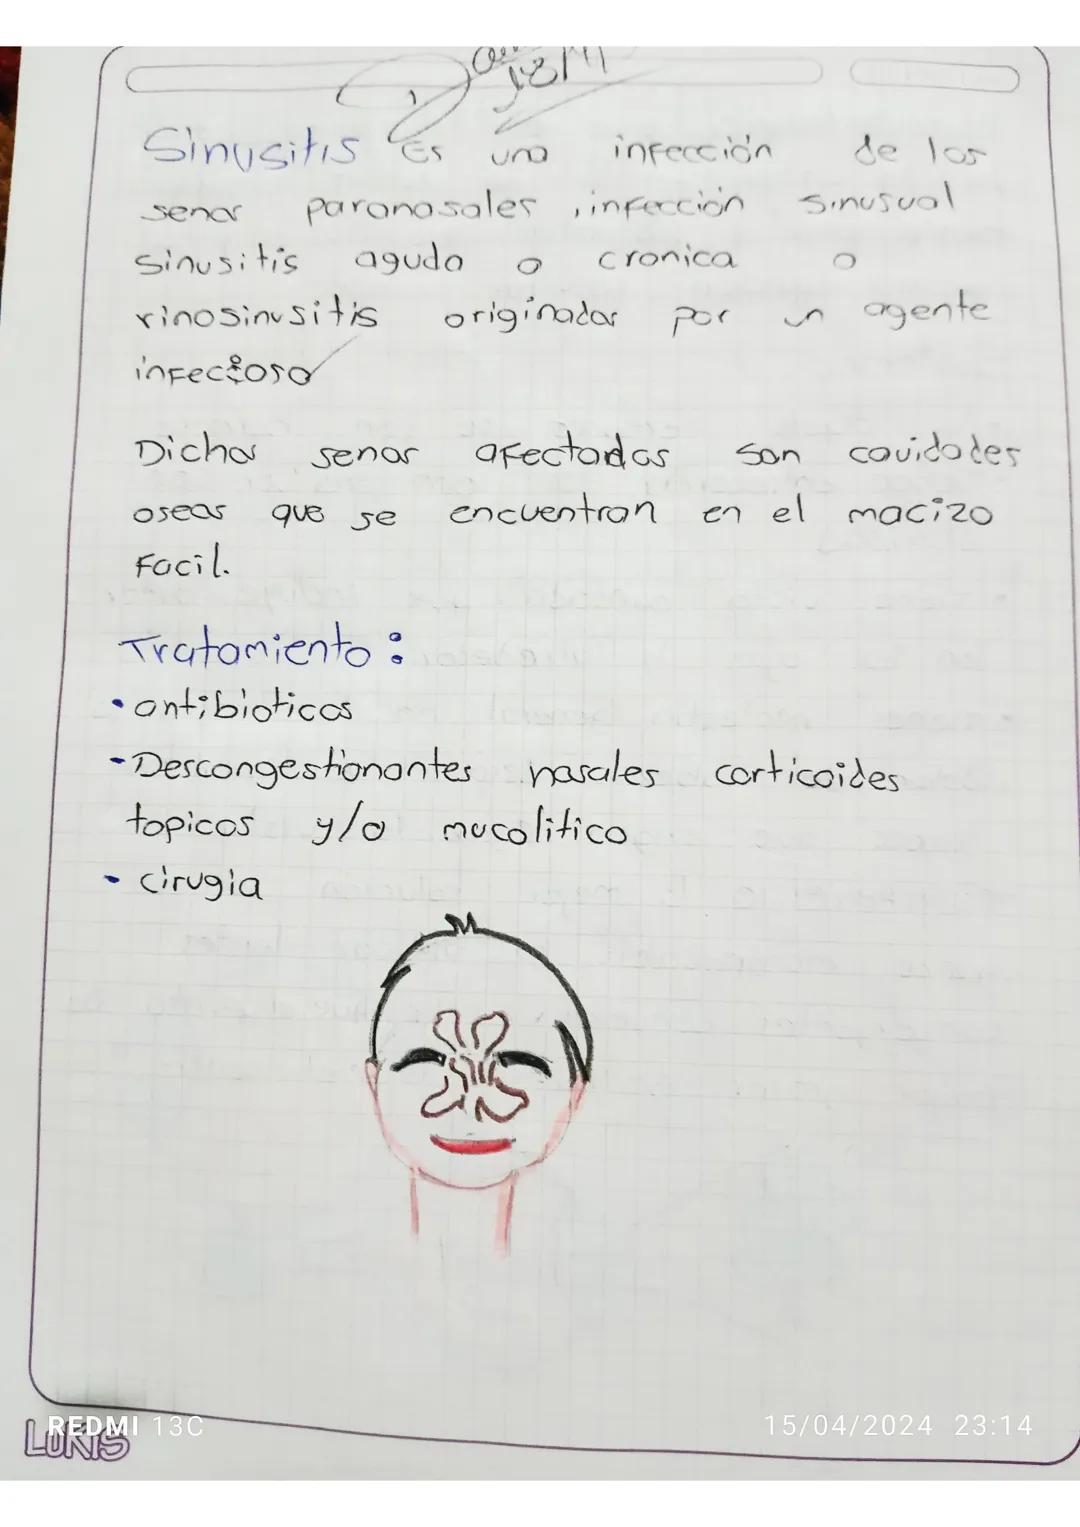 Sinusitis Es una infección de los
senos paranasales, infección sinusual
sinusitis aguda o cronica o
rinosinusitis originadas por un agente
infeccioso
Dichos senos afectados son cavidades
oseas que se encuentran en el macizo
Facil.
Tratamiento:
• antibioticos
- Descongestionantes nasales corticoides
topicos y/o mucolitico
- cirugia
REDMI 13C
15/04/2024 23:14
LORIS